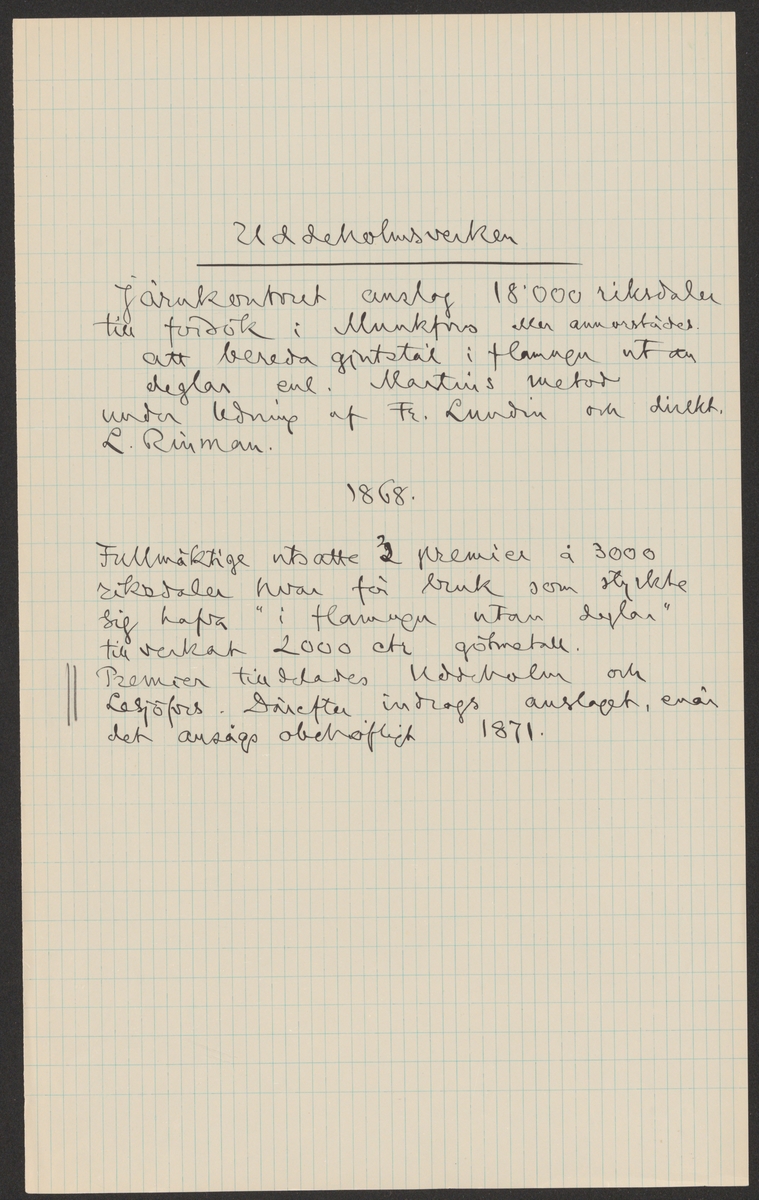 Uddeholmsverken
Järnkontoret anslog 18'000 riksdaler
till försök i Munkfors eller annorstädes
att bereda gjutstål i flamugn utan
deglar enl. Martins metod
under ledning af Fr. Lundin och direkt.
L. Rinman.
1868.
Fullmäktige utsatte 2 premier à 3000
riksdaler hvar för bruk som styrkte
sig hafva "i flamugn utan deglar"
tillverkat 2000 ctr götmetall.
Premier tilldelades Uddeholm och
Lesjöfors. Därefter indrogs anslaget, enär
det ansågs obehöfligt 1871.